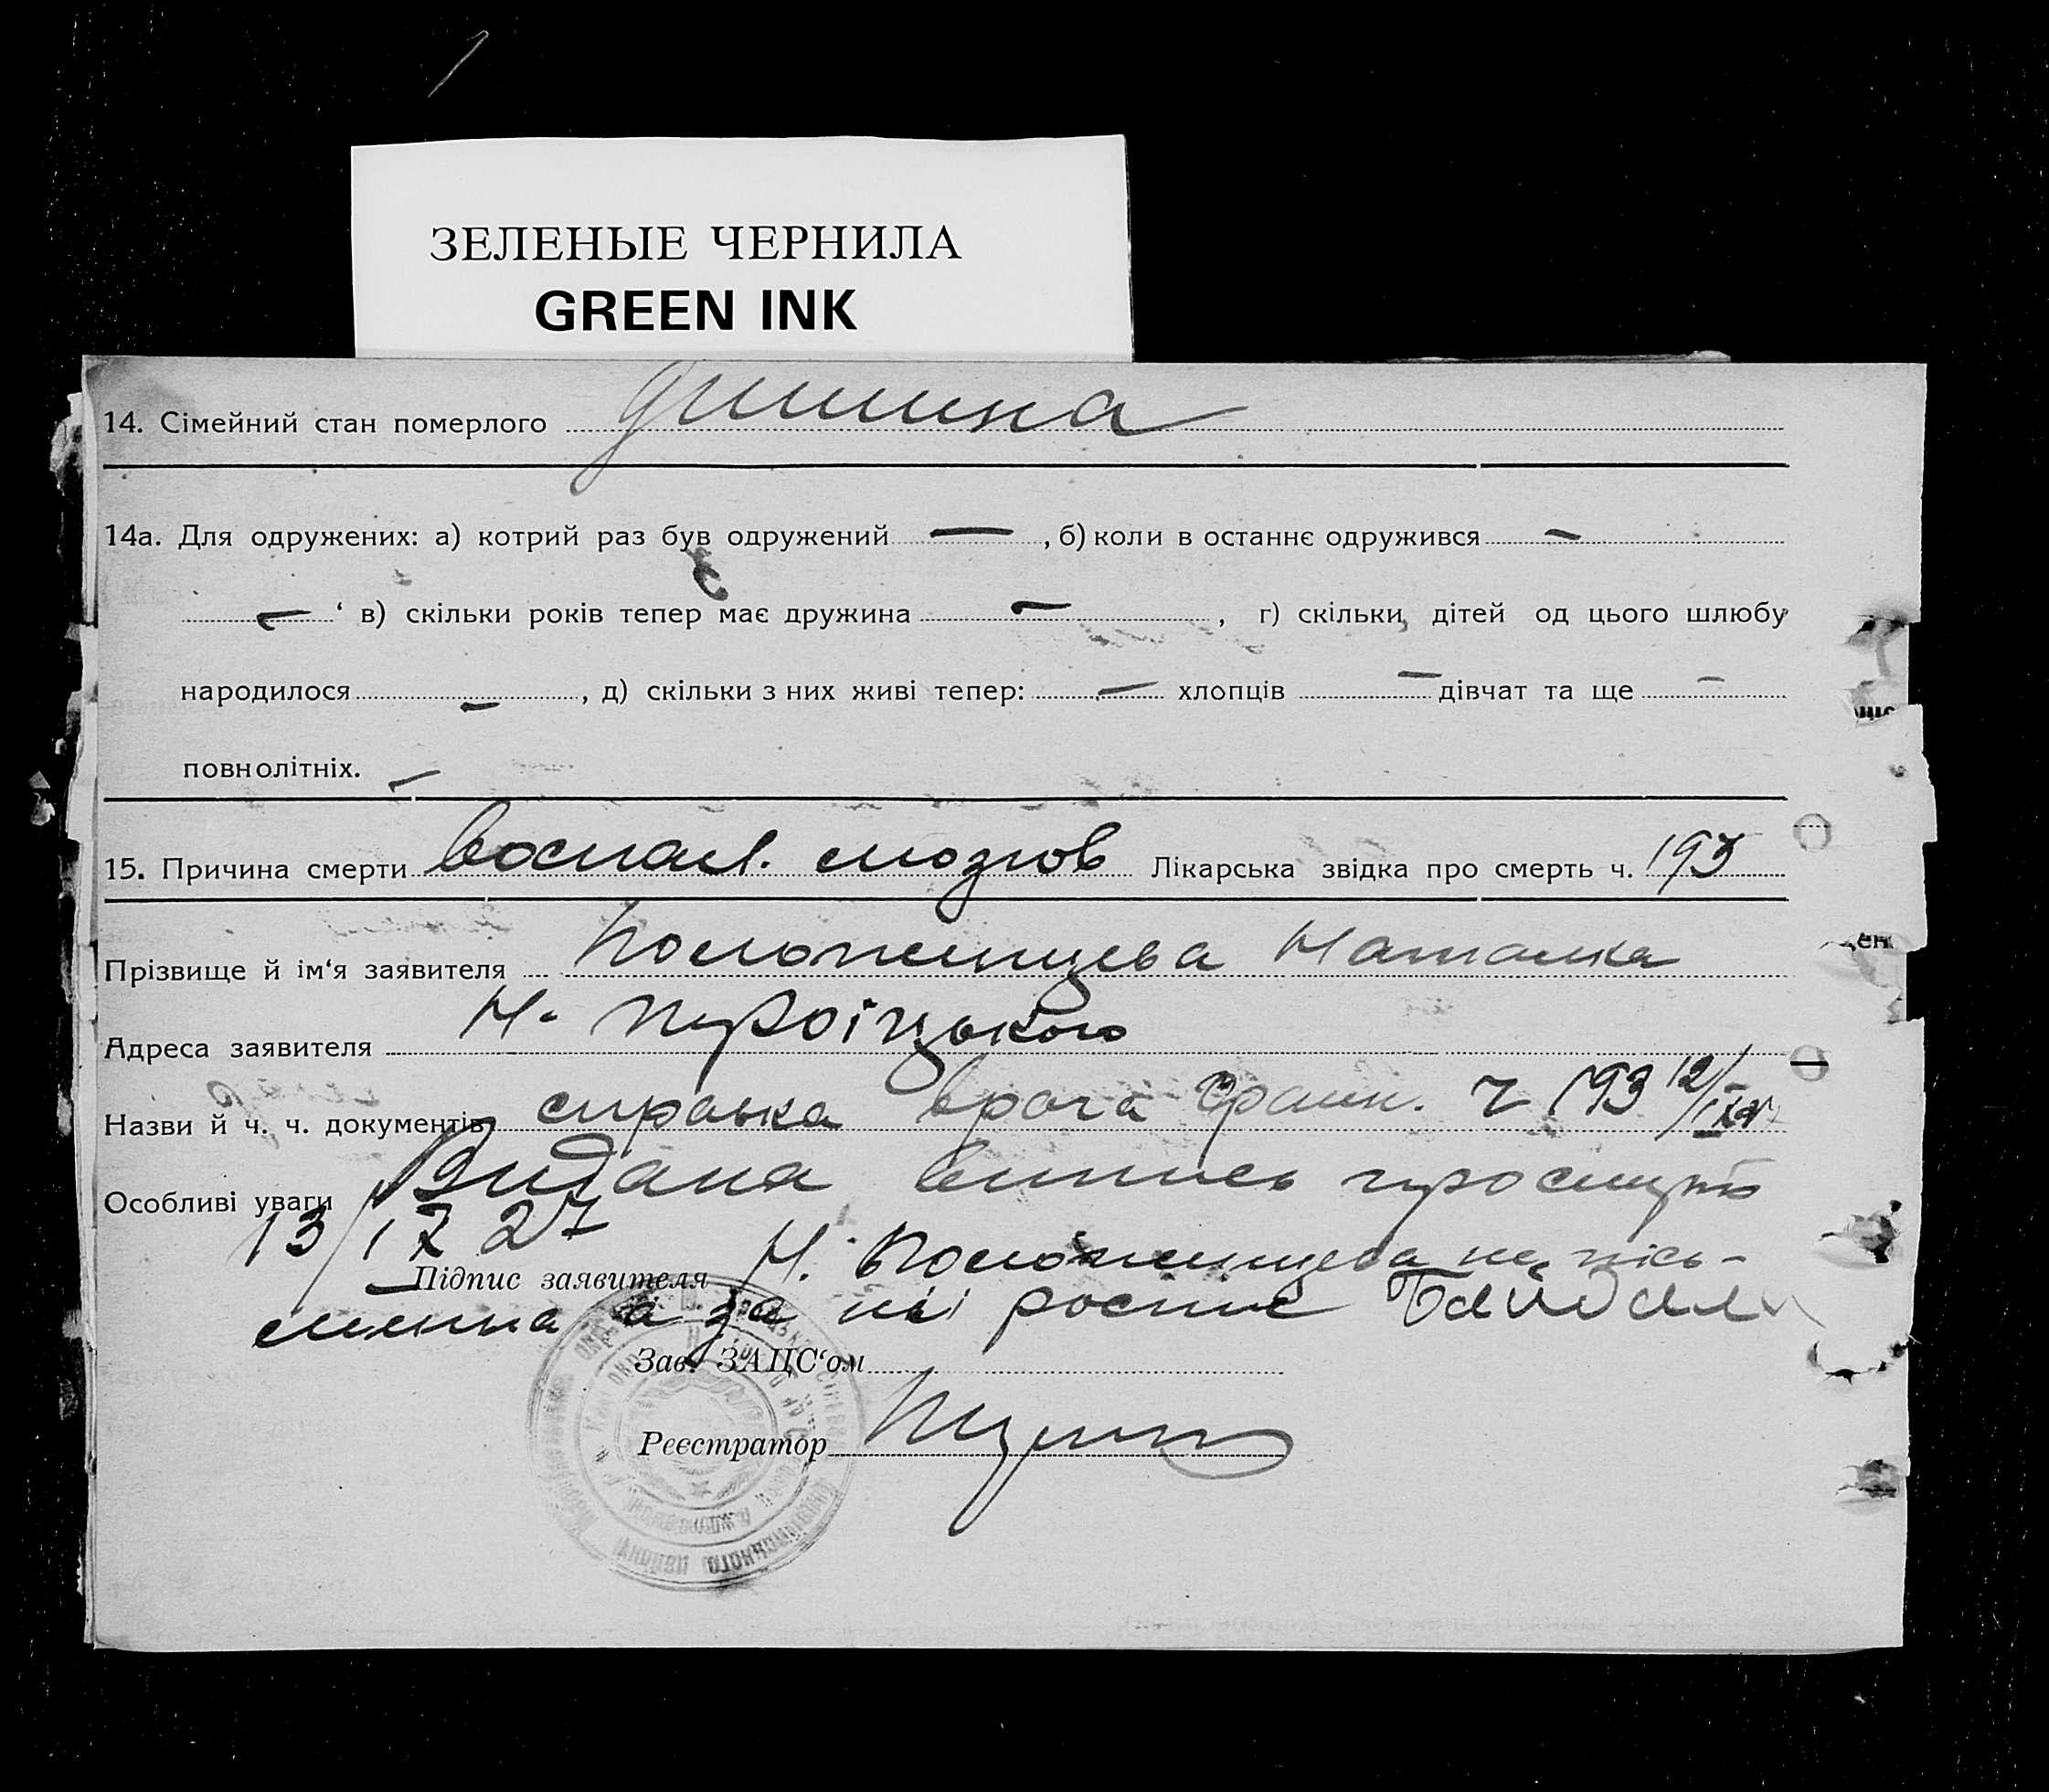 ЗЕЛЕНЫЕ ЧЕРНИЛА
GREEN INK
14. Сімейний стан померлого дитина
14а. Для одружених: а) котрий раз був одружений — , б) коли в останнє одружився —
— ‘ в) скільки років тепер має дружина — , г) скільки дітей од цього шлюбу
народилося — , д) скільки з них живі тепер: — хлопців — дівчат та ще —
повнолітніх. —
15. Причина смерти воспал. мозгов Лікарська звідка про смерть ч. 193
Прізвище й ім‘я заявителя Наталка
Адреса заявителя Н. Троіцького
Назви й ч. ч. документів справка врача ч 193 12/IX
Особливі уваги Видана випись про смерть
13/IX 27
Підпис заявителя Н. не пісь-
менна а за неі роспис
Зав. ЗАЦС‘ом
Реєстратор